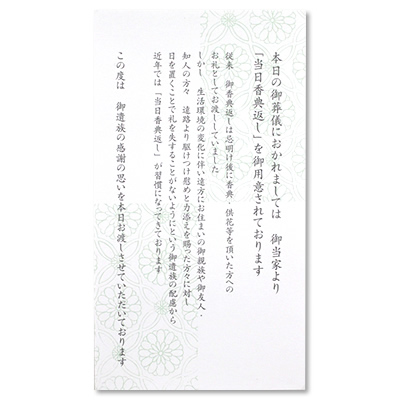 本日の御葬儀におかれましては　御当家より
「当日香典返し」を御用意されております
従来　御香典返しは忌明け後に香典・供花等を頂いた方への
お礼としてお渡ししていました
しかし　生活環境の変化に伴い遠方にお住まいの御親族や御友人・
知人の方々　遠路より駆けつけ慰めと力添えを賜った方々に対し
日を置くことで礼を失することがないようにという御遺族の配慮から
近年では「当日香典返し」が習慣になってきております
この度は　御遺族の感謝の思いを本日お渡しさせていただいております